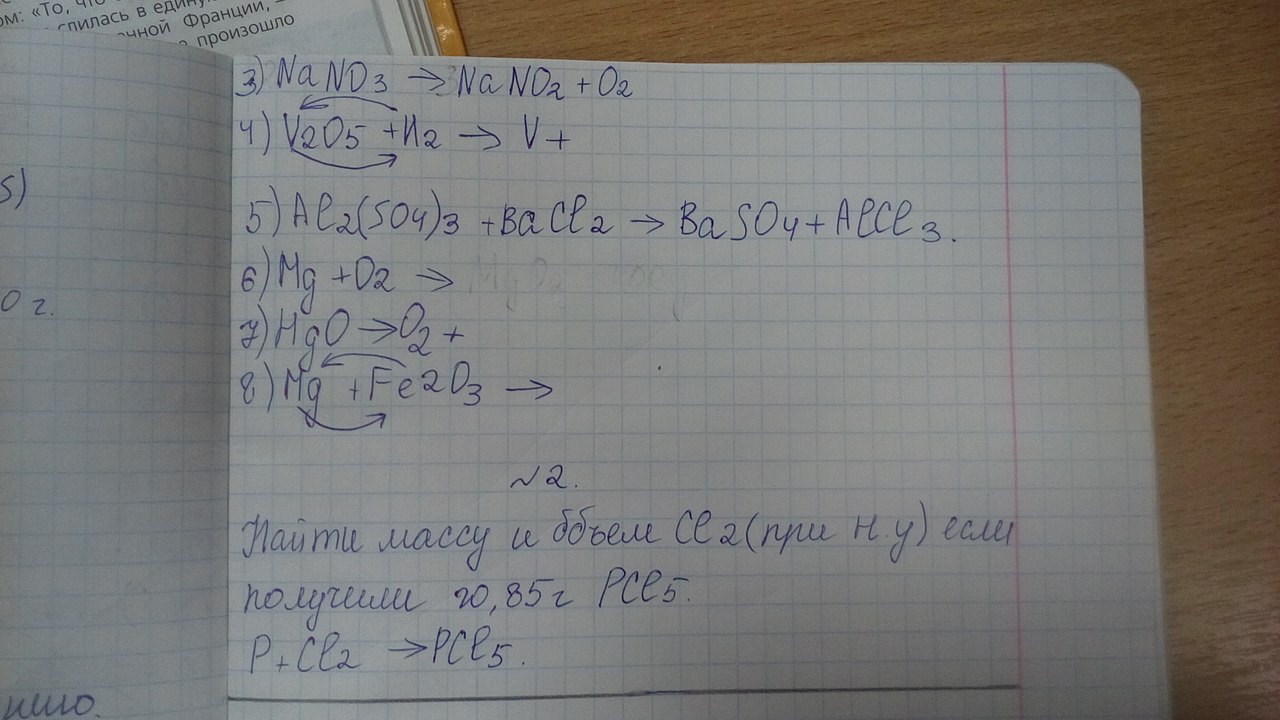 ом: «То, что
спилась в единую
чной Франции, —
произошло
3) NaNO3 → NaNO2 + O2
4) V2O5 + H2 → V +
5)
5) Al2(SO4)3 + BaCl2 → BaSO4 + AlCl3.
6) Mg + O2 →
0 г.
7) HgO → O2 +
8) Mg + Fe2O3 →
№2.
Найти массу и объем Cl2 (при н.у) если
получили 20,85г PCl5.
P + Cl2 → PCl5.